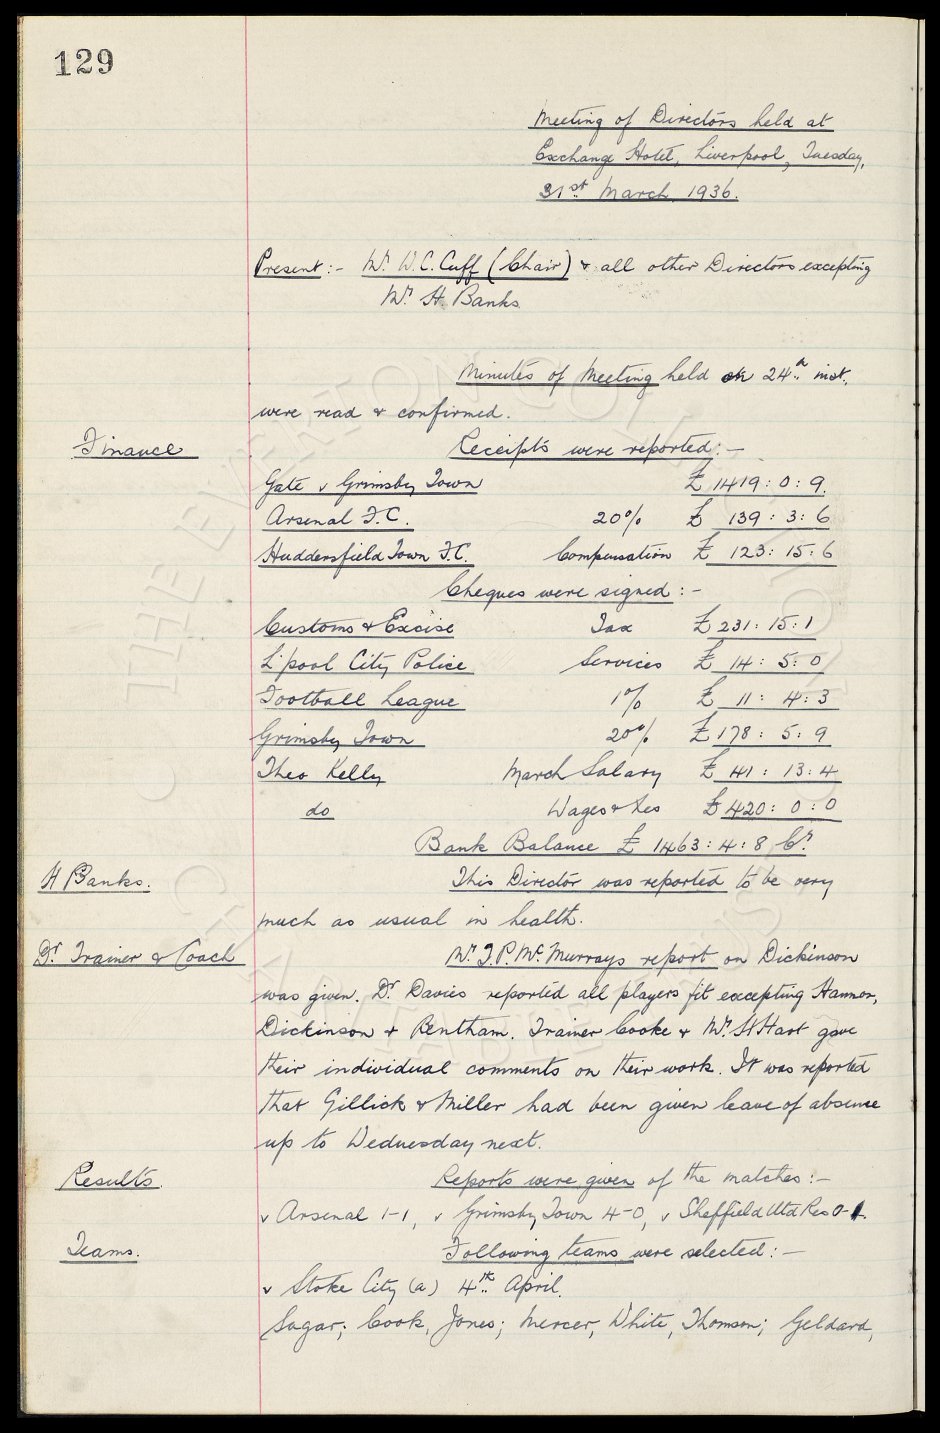 129
Meeting of Directors held at
Exchange Hotel, Liverpool, Tuesday,
31st March 1936.
Present:- Mr. W.C. Cuff (Chair) & all other Directors excepting
Mr. H. Banks
Minutes of Meeting held on 24th inst.
were read & confirmed.
Finance Receipts were reported:-
Gate v Grimsby Town £1419:0:9.
Arsenal F.C. 20% £ 139:3:6
Huddersfield Town F.C. Compensation £ 123:15:6
Cheques were signed:-
Customs & Excise Tax £231:15:1
L'pool City Police Services £ 14:5:0
Football League 1% £ 11:4:3
Grimsby Town 20% £178:5:9
Theo Kelly March Salary £ 41:13:4
do Wages & Fes £420:0:0
Bank Balance £ 1463:4:8 Cr.
H Banks. This Director was reported to be very
much as usual in health.
Dr. Trainer & Coach Mr. J.P. Mc. Murrays report on Dickinson
was given. Dr. Davies reported all players fit excepting Hannon,
Dickinson & Bentham. Trainer Cooke & Mr. H Hart gave
their individual comments on their work. It was reported
that Gillick & Miller had been given leave of absence
up to Wednesday next.
Results. Reports were given of the matches:-
v Arsenal 1-1, v Grimsby Town 4-0, v Sheffield Utd Res 0-1.
Teams. Following teams were selected:-
v Stoke City (a) 4th April.
Sagar; Cook, Jones; Mercer, White, Thomson; Geldard,
THE EVERTON COLLECTION
CHARITABLE TRUST